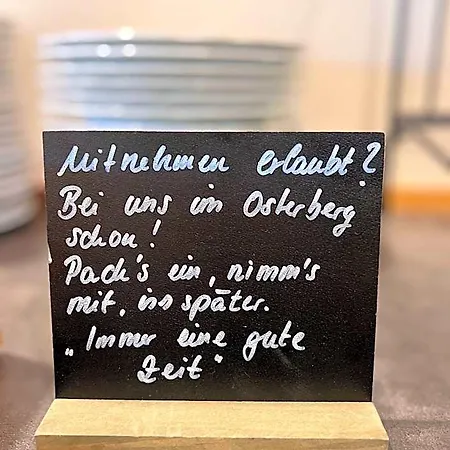 Mitnehmen erlaubt?
Bei uns im Osterberg
schon!
Pack's ein, nimm's
mit, iss später.
„Immer eine gute
Zeit"